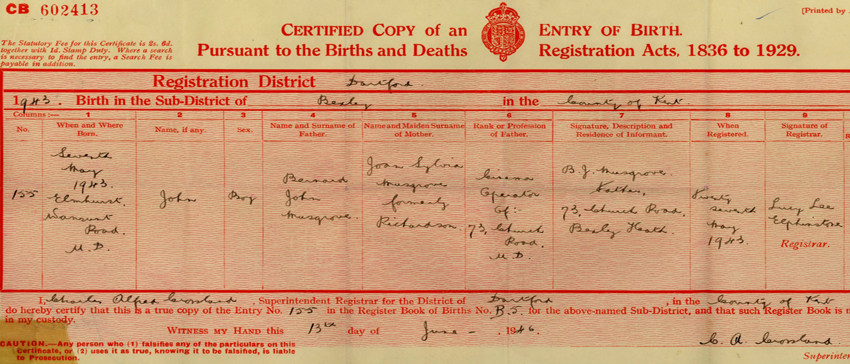 CB 602413
[Printed by
The Statutory Fee for this Certificate is 2s. 6d.
together with 1d. Stamp Duty. Where a search
is necessary to find the entry, a Search Fee is
payable in addition.
CERTIFIED COPY of an ENTRY OF BIRTH.
Pursuant to the Births and Deaths Registration Acts, 1836 to 1929.
Registration District Dartford.
1943. Birth in the Sub-District of Bexley in the County of Kent.
Columns :— 1 2 3 4 5 6 7 8 9
No. When and Where Born. Name, if any. Sex. Name and Surname of Father. Name and Maiden Surname of Mother. Rank or Profession of Father. Signature, Description and Residence of Informant. When Registered. Signature of Registrar.
155
Seventh
May
1943.
Elmhurst,
Wansunt
Road.
U.D.
John
Boy
Bernard
John
Musgrove.
Joan Sylvia
Musgrove
formerly
Richardson.
Cinema
Operator
Of:-
73, Church
Road.
U.D.
B.J. Musgrove.
Father,
73, Church Road,
Bexley Heath.
Twenty
seventh
May
1943.
Lucy Lee
Elphinstone
Registrar.
I, Charles Alfred Crossland, Superintendent Registrar for the District of Dartford, in the County of Kent
do hereby certify that this is a true copy of the Entry No. 155 in the Register Book of Births No. for the above-named Sub-District, and that such Register Book is
in my custody.
WITNESS MY HAND this 13th day of June - , 1946.
CAUTION.—Any person who (1) falsifies any of the particulars on this
Certificate, or (2) uses it as true, knowing it to be falsified, is liable
to Prosecution.
C. A. Crossland.
Superinten